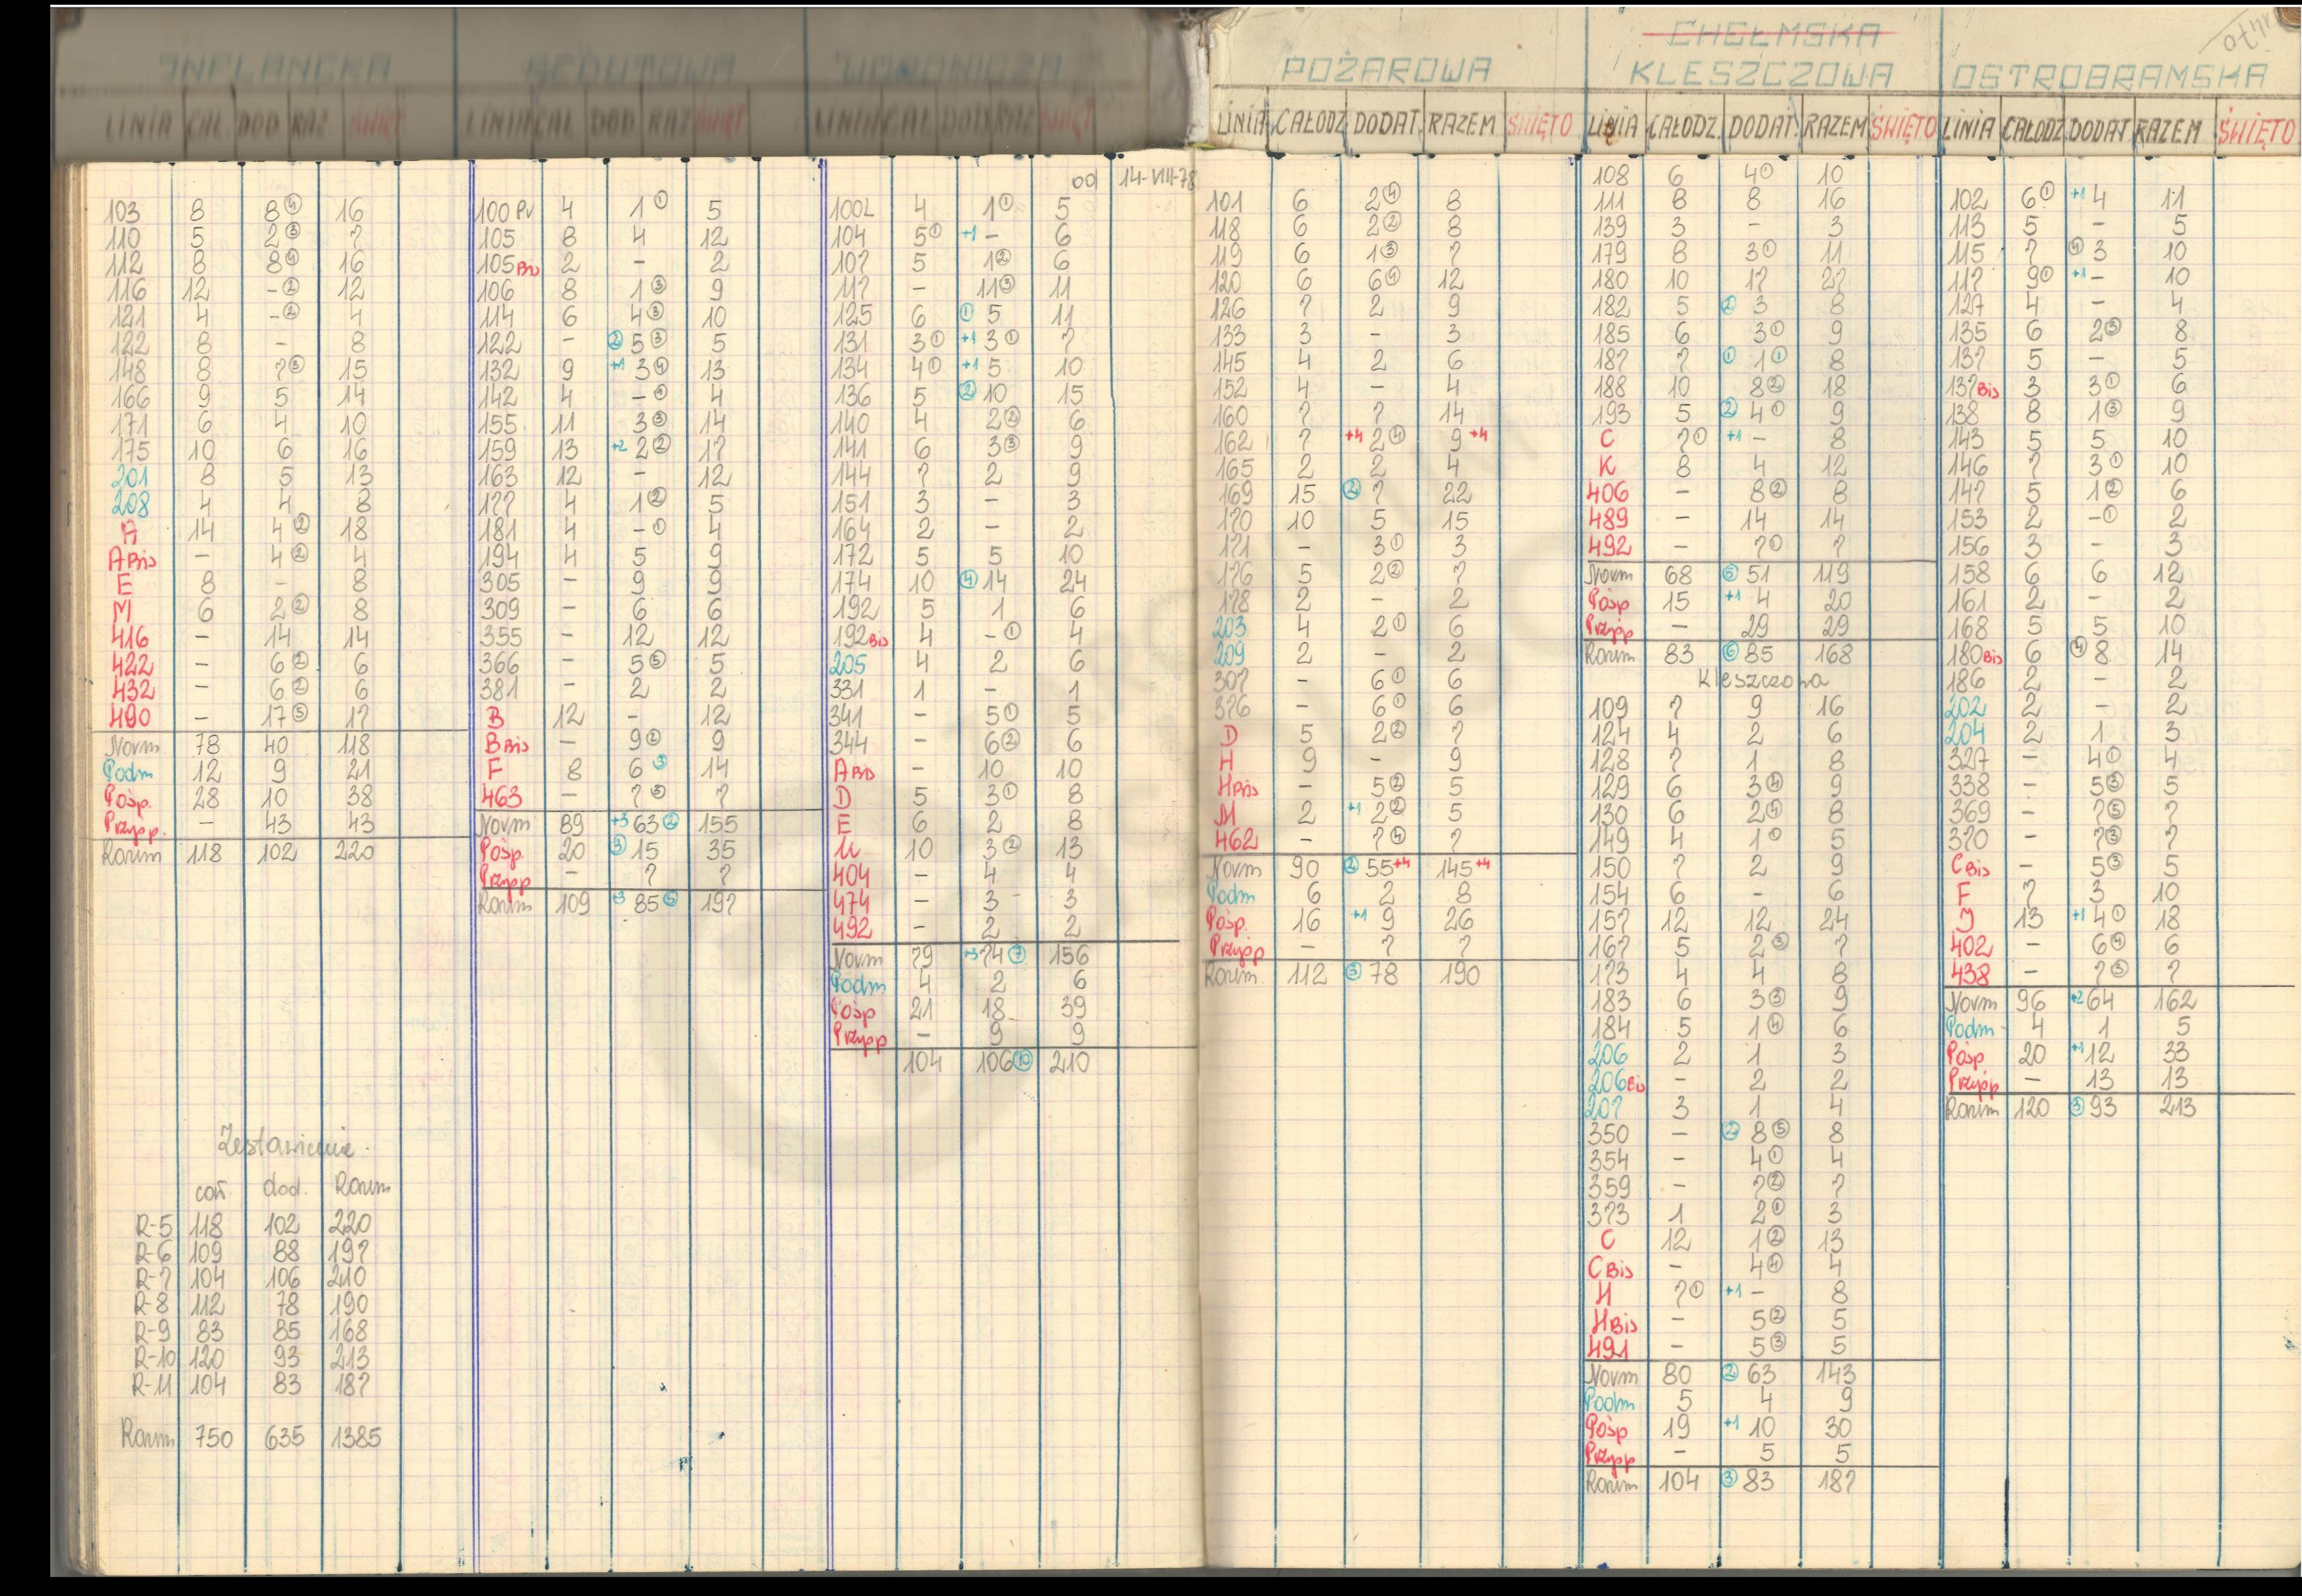 INFLANCKA
LINIA CAŁ DOD RAZ ŚWIĘT
103 8 8④ 16
110 5 2③ 7
112 8 8④ 16
116 12 -② 12
121 4 -② 4
122 8 - 8
148 8 7③ 15
166 9 5 14
171 6 4 10
175 10 6 16
201 8 5 13
208 4 4 8
A 14 4② 18
A Bis - 4② 4
E 8 - 8
M 6 2② 8
416 - 14 14
422 - 6② 6
432 - 6② 6
490 - 17⑤ 17
Norm 78 40 118
Podm 12 9 21
Pośp. 28 10 38
Przysp. - 43 43
Razem 118 102 220
Zestawienie
cał dod. Razem
R-5 118 102 220
R-6 109 88 197
R-7 104 106 210
R-8 112 78 190
R-9 83 85 168
R-10 120 93 213
R-11 104 83 187
Razem 750 635 1385
REDUTOWA
LINIA CAŁ DOD RAZ ŚWIĘT
100 Pv 4 1① 5
105 8 4 12
105 Bis 2 - 2
106 8 1③ 9
114 6 4③ 10
122 - ②5③ 5
132 9 +1 3④ 13
142 4 -① 4
155 11 3③ 14
159 13 +2 2② 17
163 12 - 12
177 4 1② 5
181 4 -① 4
194 4 5 9
305 - 9 9
309 - 6 6
355 - 12 12
366 - 5⑤ 5
381 - 2 2
B 12 - 12
B Bis - 9② 9
F 8 6③ 14
463 - 7③ 7
Norm 89 +3 63② 155
Pośp. 20 ③15 35
Przysp - 7 7
Razem 109 +3 85⑤ 197
WORONICZA
LINIA CAŁ DOD RAZ ŚWIĘT
od 14-VIII-78
100L 4 1① 5
104 5① +1 - 6
107 5 1② 6
117 - 11③ 11
125 6 ①5 11
131 3① +1 3① 7
134 4① +1 5 10
136 5 ②10 15
140 4 2② 6
141 6 3③ 9
144 7 2 9
151 3 - 3
164 2 - 2
172 5 5 10
174 10 ④14 24
192 5 1 6
192 Bis 4 -① 4
205 4 2 6
331 1 - 1
341 - 5① 5
344 - 6② 6
A Bis - 10 10
D 5 3① 8
E 6 2 8
U 10 3② 13
404 - 4 4
474 - 3 3
492 - 2 2
Norm 79 +3 74⑦ 156
Podm 4 2 6
Pośp 21 18 39
Przysp - 9 9
104 106⑩ 210
POŻAROWA
LINIA CAŁODZ DODAT. RAZEM ŚWIĘTO
101 6 2④ 8
118 6 2② 8
119 6 1③ 7
120 6 6④ 12
126 7 2 9
133 3 - 3
145 4 2 6
152 4 - 4
160 7 7 14
162 7 +4 2④ 9 +4
165 2 2 4
169 15 ②7 22
170 10 5 15
171 - 3① 3
176 5 2② 7
178 2 - 2
203 4 2① 6
209 2 - 2
307 - 6① 6
376 - 6① 6
D 5 2② 7
H 9 - 9
H Bis - 5② 5
M 2 +1 2② 5
462 - 7④ 7
Norm 90 ②55+4 145+4
Podm 6 2 8
Pośp. 16 +1 9 26
Przysp - 7 7
Razem 112 ③78 190
CHEŁMSKA
KLESZCZOWA
LINIA CAŁODZ. DODAT. RAZEM ŚWIĘTO
108 6 4① 10
111 8 8 16
139 3 - 3
179 8 3① 11
180 10 17 27
182 5 ②3 8
185 6 3① 9
187 7 ①1① 8
188 10 8② 18
193 5 ②4① 9
C 7① +1 - 8
K 8 4 12
406 - 8② 8
489 - 14 14
492 - 7① 7
Norm 68 ⑤51 119
Pośp 15 +1 4 20
Przysp - 29 29
Razem 83 ⑥85 168
Kleszczowa
109 7 9 16
124 4 2 6
128 7 1 8
129 6 3④ 9
130 6 2④ 8
149 4 1① 5
150 7 2 9
154 6 - 6
157 12 12 24
167 5 2③ 7
173 4 4 8
183 6 3③ 9
184 5 1④ 6
206 2 1 3
206 Bis - 2 2
207 3 1 4
350 - ②8⑤ 8
354 - 4① 4
359 - 7② 7
373 1 2① 3
C 12 1② 13
C Bis - 4④ 4
H 7① +1 - 8
H Bis - 5② 5
491 - 5③ 5
Norm 80 ②63 143
Podm 5 4 9
Pośp 19 +1 10 30
Przysp - 5 5
Razem 104 ③83 187
OSTROBRAMSKA
LINIA CAŁODZ DODAT RAZEM ŚWIĘTO
102 6① +1 4 11
113 5 - 5
115 7 ④3 10
117 9① +1 - 10
127 4 - 4
135 6 2③ 8
137 5 - 5
137 Bis 3 3① 6
138 8 1③ 9
143 5 5 10
146 7 3① 10
147 5 1② 6
153 2 -① 2
156 3 - 3
158 6 6 12
161 2 - 2
168 5 5 10
180 Bis 6 ④8 14
186 2 - 2
202 2 - 2
204 2 1 3
327 - 4① 4
338 - 5③ 5
369 - 7⑤ 7
370 - 7③ 7
C Bis - 5③ 5
F 7 3 10
J 13 +1 4① 18
402 - 6④ 6
438 - 7③ 7
Norm 96 +2 64 162
Podm 4 1 5
Pośp 20 +1 12 33
Przysp - 13 13
Razem 120 ③93 213